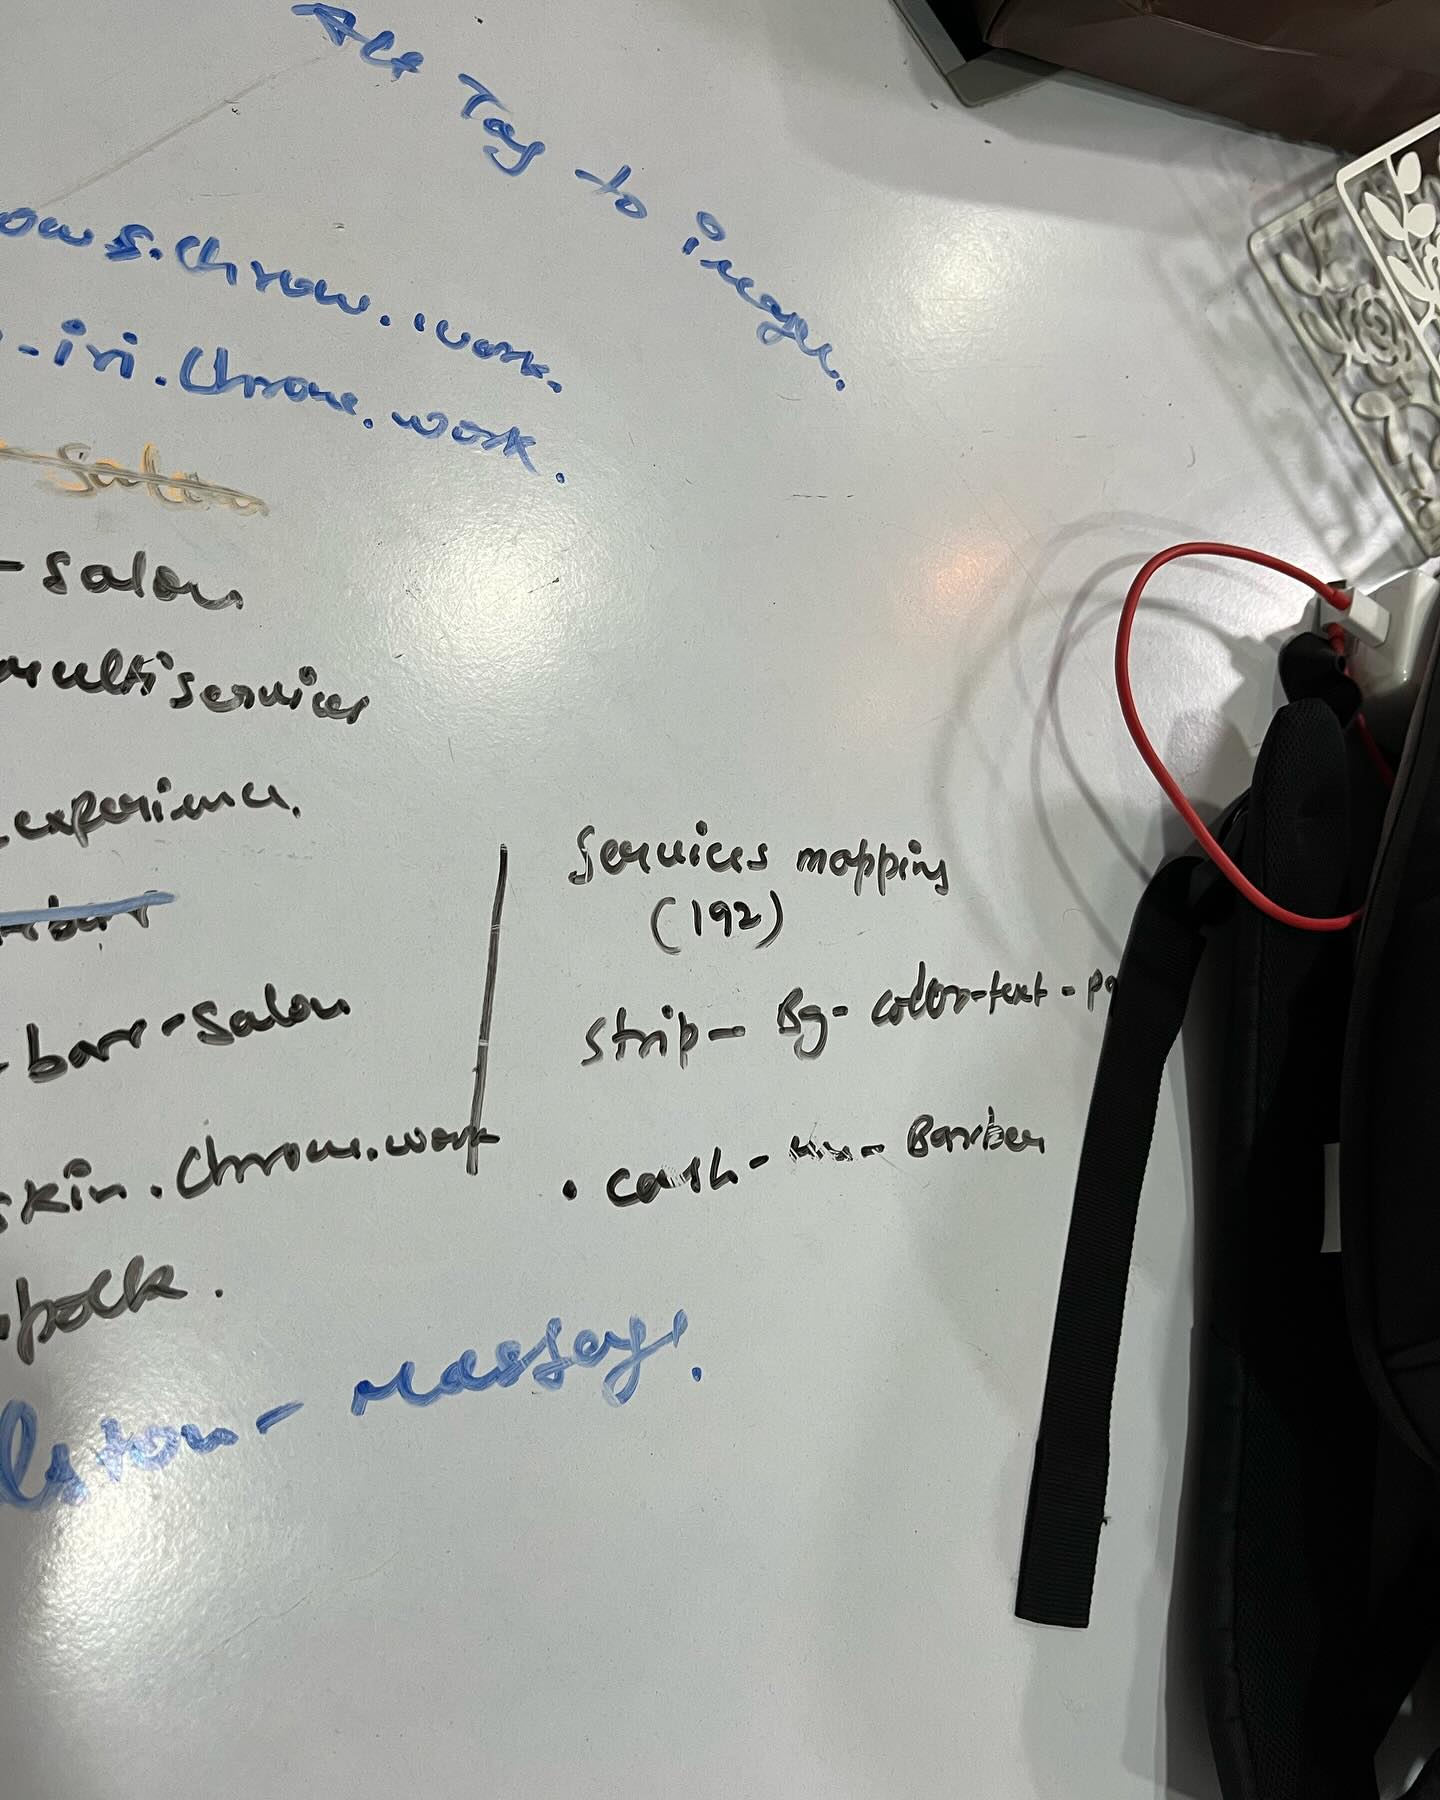 Alt Tag to image.
ows.chrome.work.
-iri.chrome.work.
salon
-salon
multiservices
experience.
-barr-salon
skin.chrome.work
polk.
lston-massage.
Services mapping
(192)
strip-Bg-color-text-pa
• cash- Barber